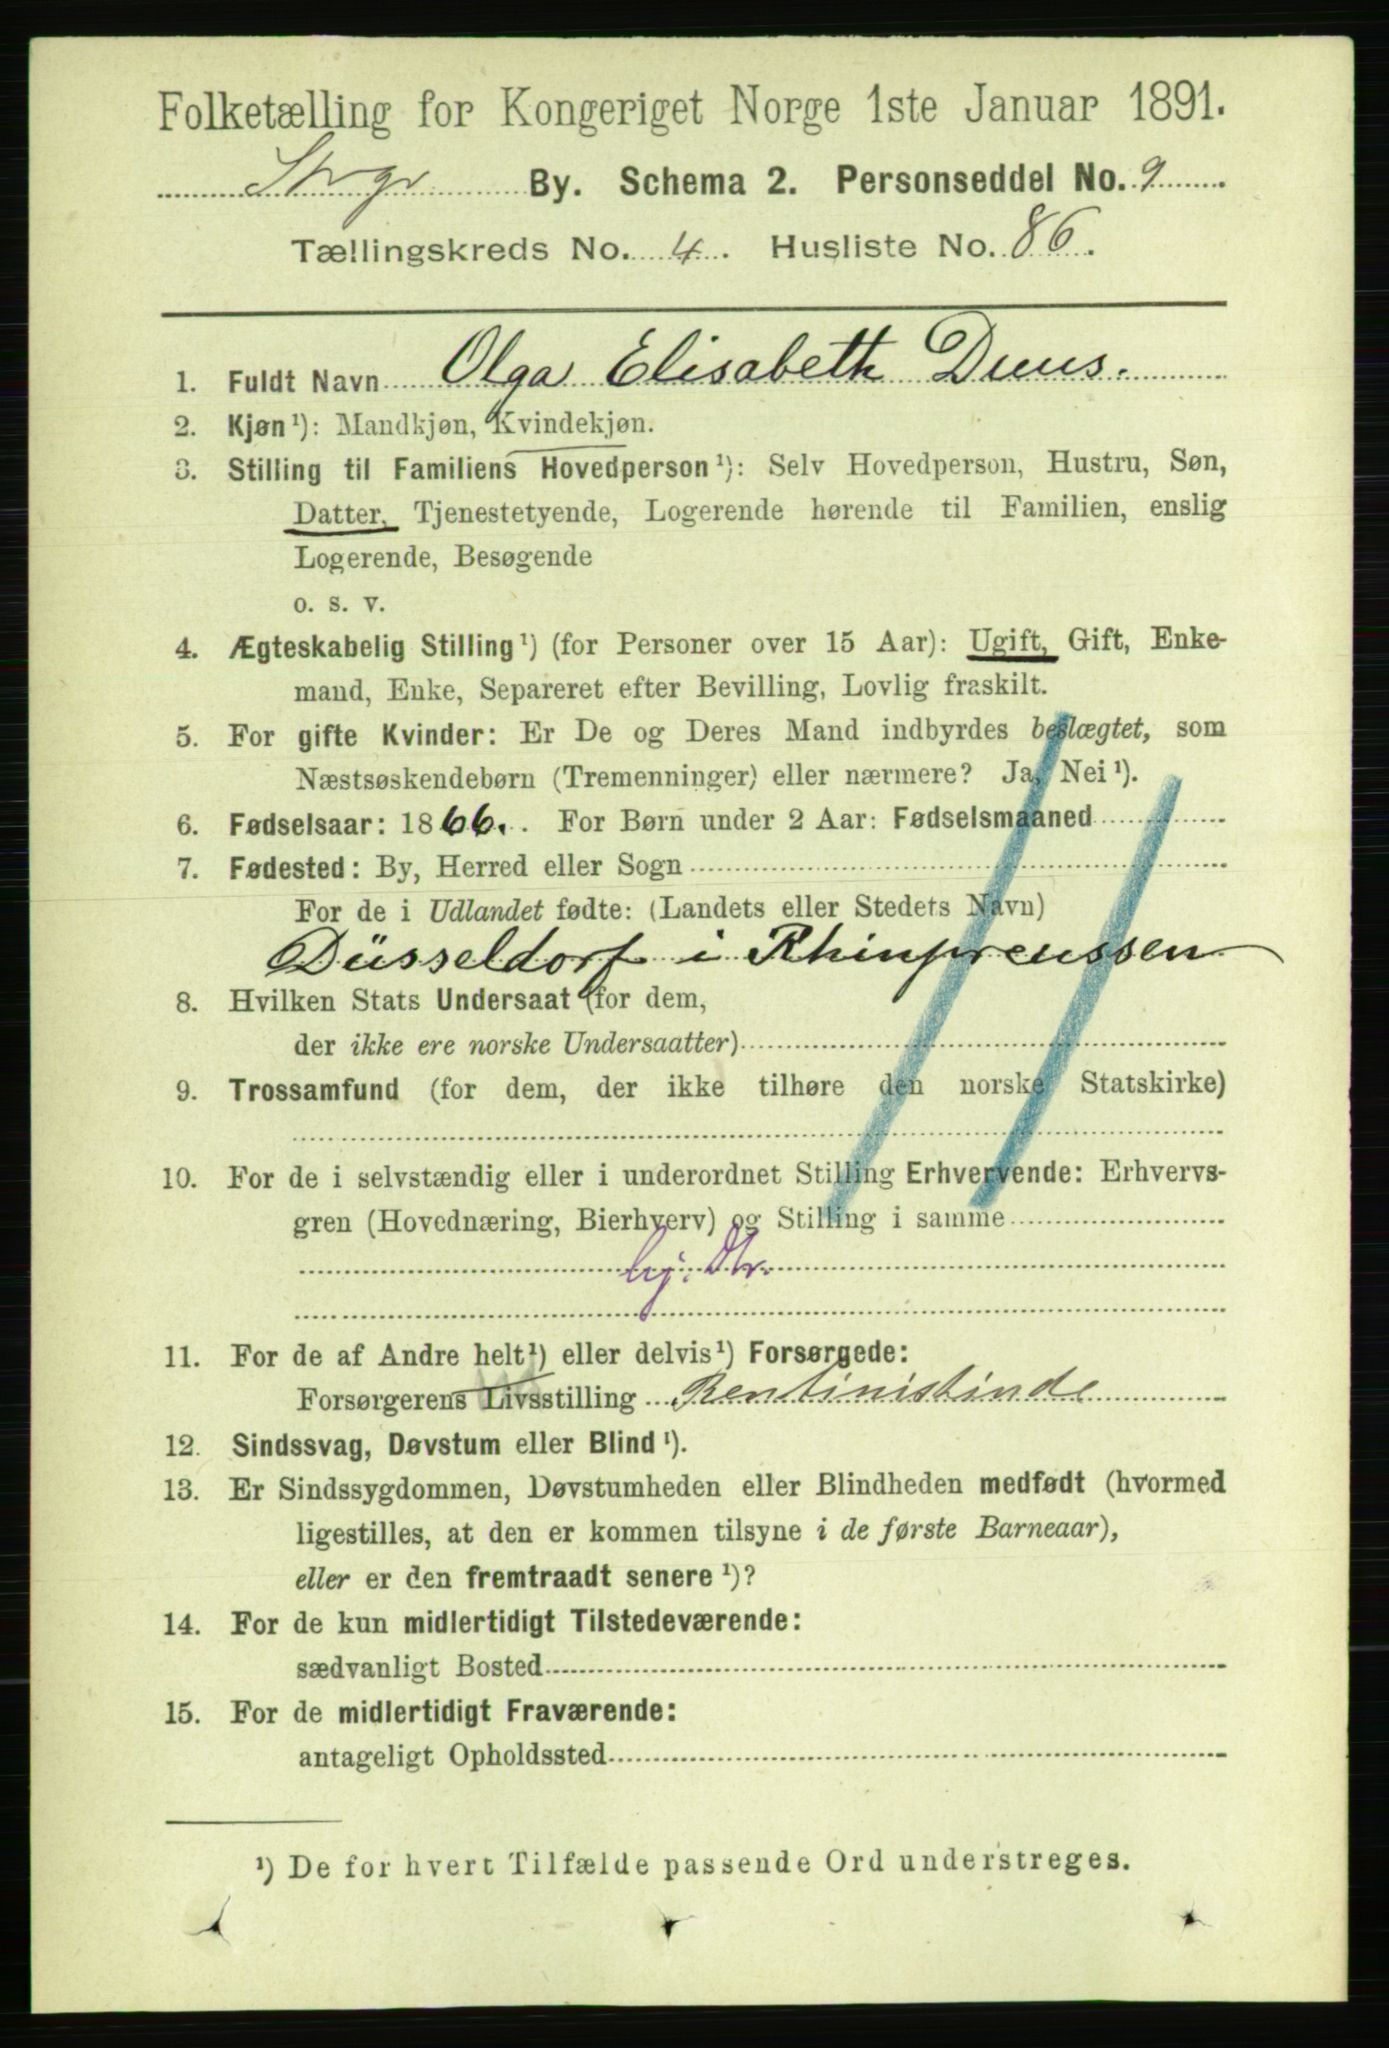 Folketælling for Kongeriget Norge 1ste Januar 1891.
By. Schema 2. Personseddel No. 9
Tællingskreds No. 4. Husliste No. 86.
1. Fuldt Navn Olga Elisabeth Duus.
2. Kjøn¹): Mandkjøn, Kvindekjøn.
3. Stilling til Familiens Hovedperson¹): Selv Hovedperson, Hustru, Søn,
Datter, Tjenestetyende, Logerende hørende til Familien, enslig
Logerende, Besøgende
o. s. v.
4. Ægteskabelig Stilling¹) (for Personer over 15 Aar): Ugift, Gift, Enke-
mand, Enke, Separeret efter Bevilling, Lovlig fraskilt.
5. For gifte Kvinder: Er De og Deres Mand indbyrdes beslægtet, som
Næstsøskendebørn (Tremenninger) eller nærmere? Ja, Nei¹).
6. Fødselsaar: 1866. For Børn under 2 Aar: Fødselsmaaned
7. Fødested: By, Herred eller Sogn
For de i Udlandet fødte: (Landets eller Stedets Navn)
Düsseldorf i Rhinpreussen
8. Hvilken Stats Undersaat (for dem,
der ikke ere norske Undersaatter)
9. Trossamfund (for dem, der ikke tilhøre den norske Statskirke)
10. For de i selvstændig eller i underordnet Stilling Erhvervende: Erhvervs-
gren (Hovednæring, Bierhverv) og Stilling i samme
hj. Dtr.
11. For de af Andre helt¹) eller delvis¹) Forsørgede:
Forsørgerens Livsstilling Rentinistinde
12. Sindssvag, Døvstum eller Blind¹).
13. Er Sindssygdommen, Døvstumheden eller Blindheden medfødt (hvormed
ligestilles, at den er kommen tilsyne i de første Barneaar),
eller er den fremtraadt senere¹)?
14. For de kun midlertidigt Tilstedeværende:
sædvanligt Bosted
15. For de midlertidigt Fraværende:
antageligt Opholdssted
¹) De for hvert Tilfælde passende Ord understreges.